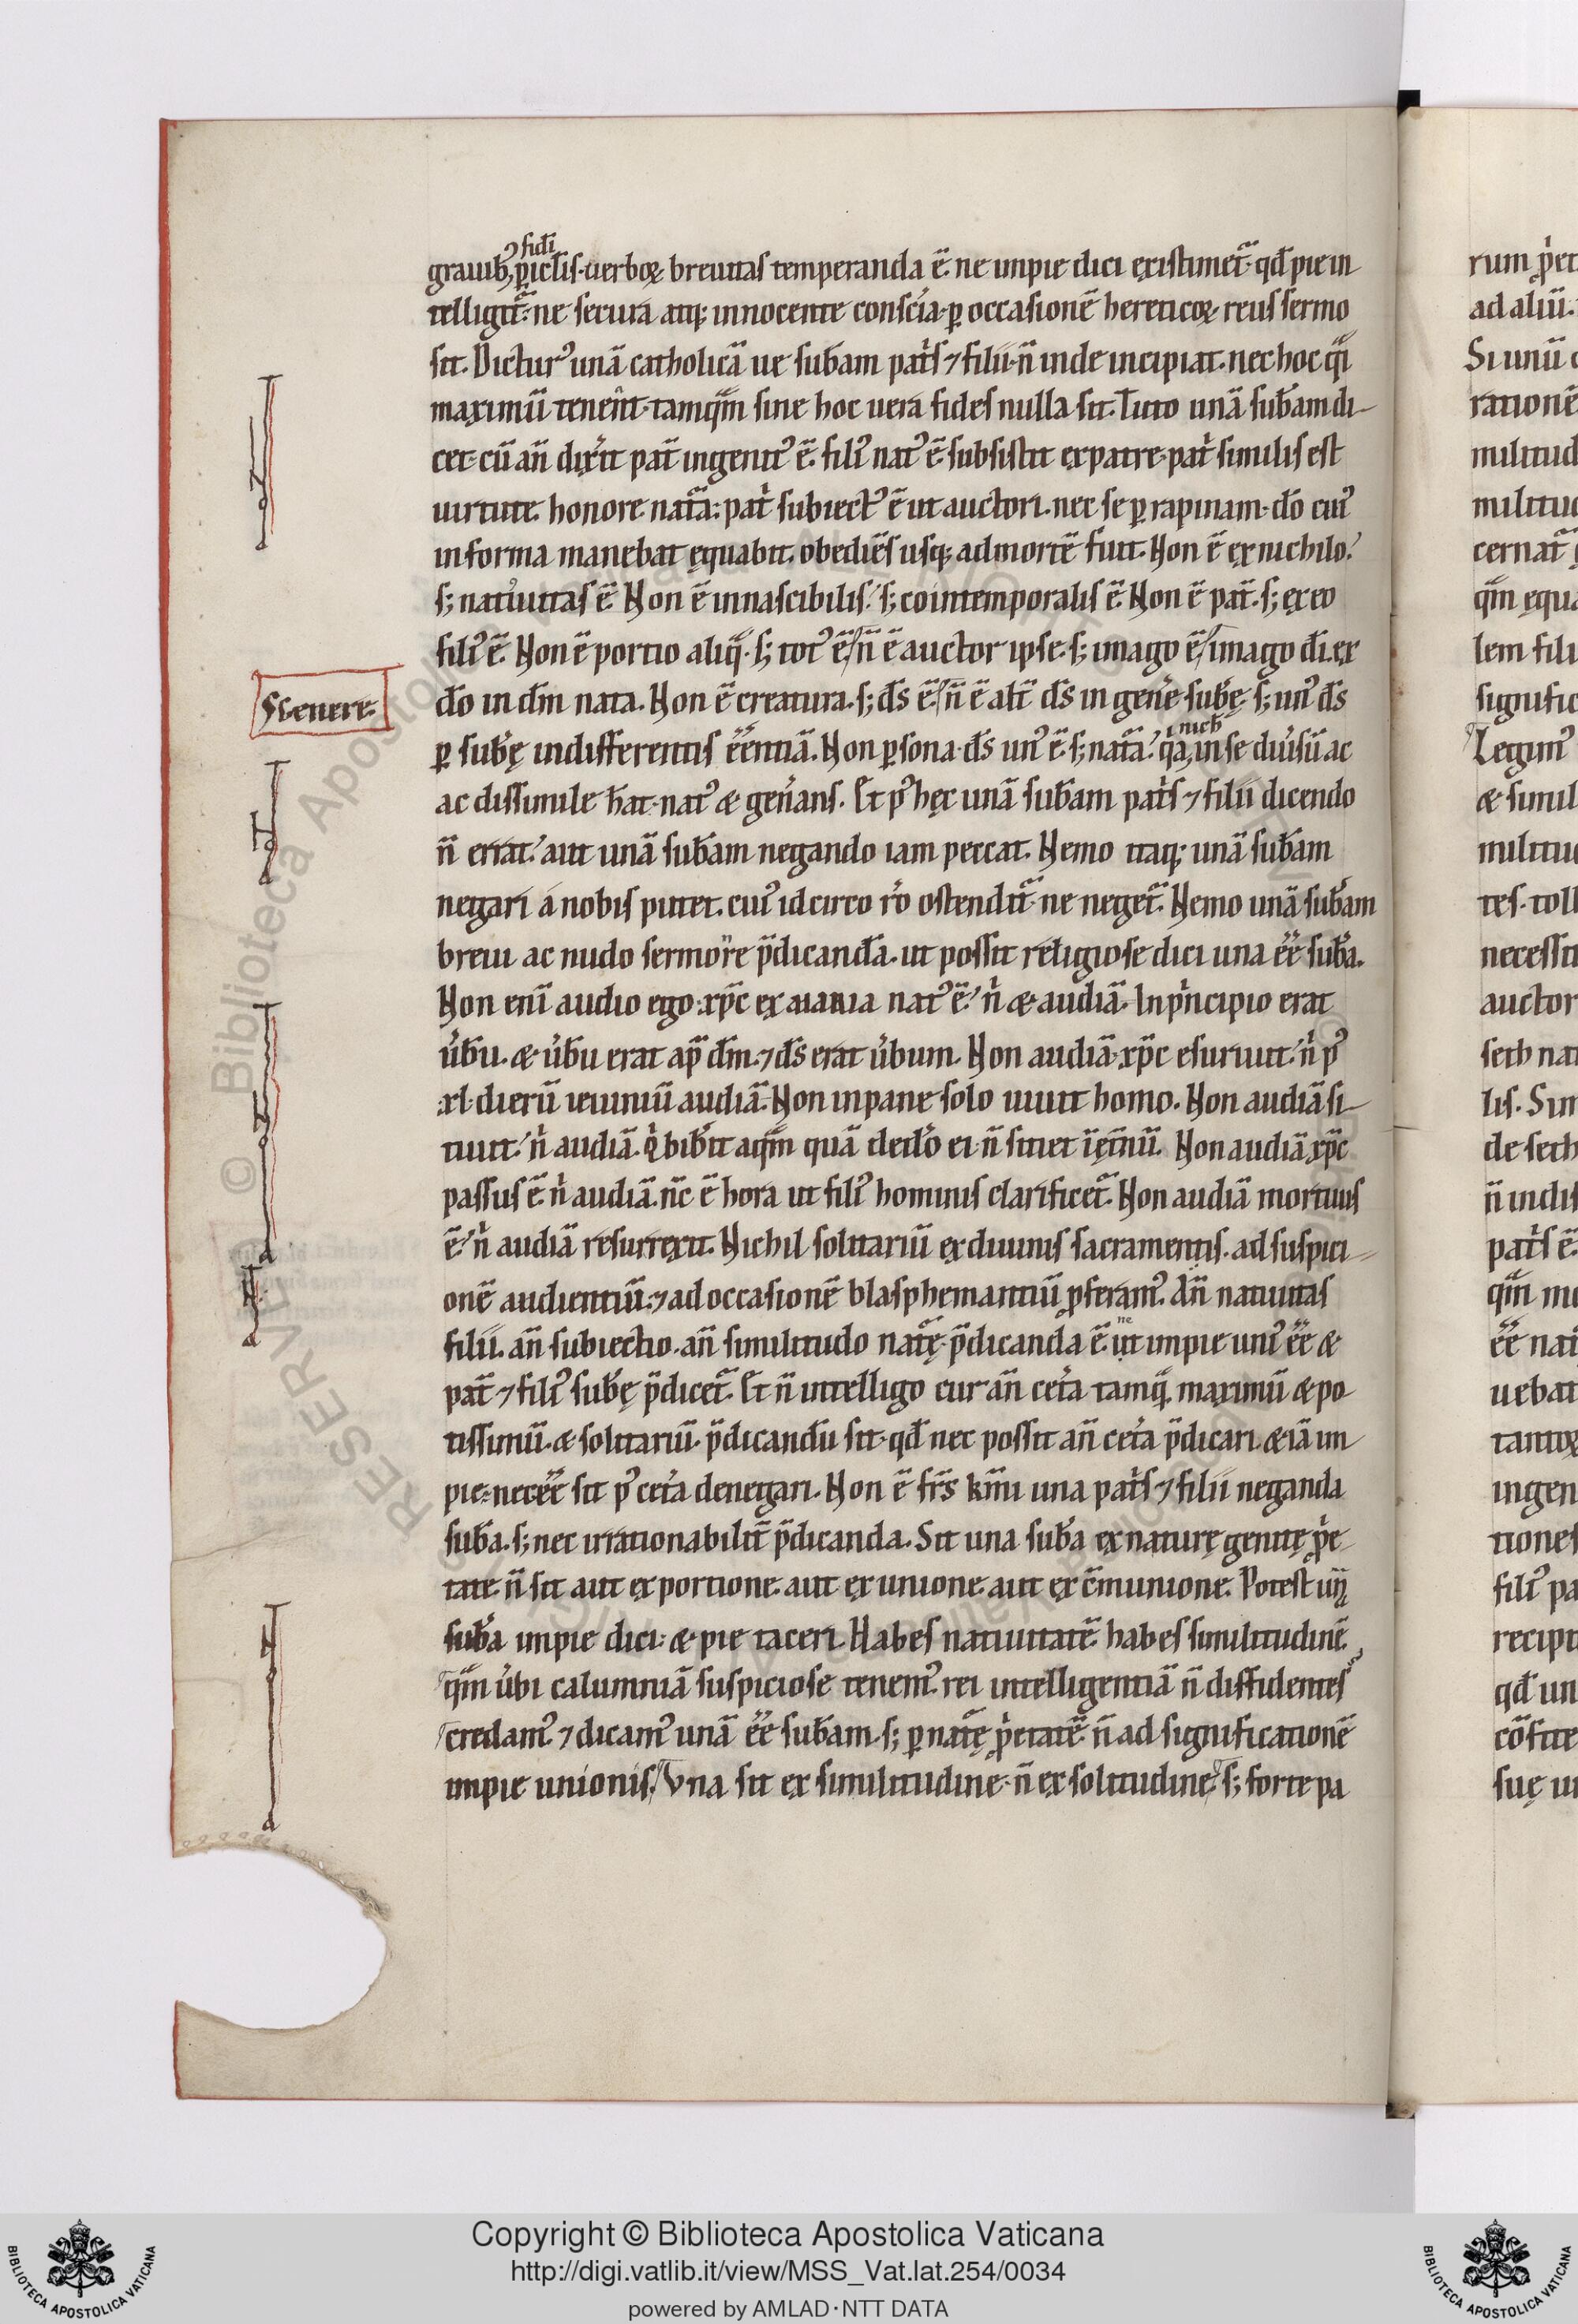 fidi
grauibꝫ p̱icl̄is·uerboꝝ breuitas temperanda ē. ne impie dici existimet᷑· qd̄ pie in
telligit᷑· ne secura atqꝫ innocente conscia· ꝑ occasionē hereticoꝝ reus sermo
sit. Dicturꝰ unā catholicā ue sub̄am pat̓s ⁊ filii· n̄ inde incipiat. nec hoc q̄i
maximū teneñt· tamq̄m sine hoc uera fides nulla sit. Tuto unā sub̄am di-
cet· cū añ dix̓it pat̄ ingenitꝰ ē. filiꝰ natꝰ ē· subsistit ex patre· pat̓ similis est
uirtute. honore nat̄a· pat̓ subiectꝰ ē ut auctori. nec se ꝑ rapinam· dō cuiꝰ
in forma manebat ęquabit. obediēs usqꝫ ad mortē fuit. Non ē ex nichilo.
sꝫ natiuitas ē. Non ē innascibilis. sꝫ cointemporalis ē. Non ē pat̄. sꝫ ex eo
filiꝰ ē. Non ē portio aliq̄· sꝫ totꝰ ē· n̄ ē auctor ipse· sꝫ imago ē· imago dī. ex
Sc. enere.
dō in dm̄ nata. Non ē creatura. sꝫ ds̄ ē· n̄ ē alt̄ ds̄ in gen̓e sub̄ę· sꝫ unꝰ ds̄
nich̄
ꝑ sub̄ę indifferentis ēēntiā. Non ꝑsona· ds̄ unꝰ ē· sꝫ nat̄a· q̄a in se diu̓sū ac
ac dissimile h̄at· natꝰ & gen̓ans. Et pꝰ hęc unā sub̄am pat̓s ⁊ filii dicendo
n̄ errat· aut unā sub̄am negando iam peccat. Nemo itaqꝫ unā sub̄am
negari a nobis putet. cuiꝰ idcirco r̓o ostendit᷑· ne neget᷑. Nemo unā sub̄am
breui ac nudo sermone p̄dicandā. ut possit religiose dici una ēē sub̄a.
Non enī audio ego· xp̄c ex maria natꝰ ē· n̓ & audiā· In p̓ncipio erat
u̓bū. & u̓bū erat ap̄ dm̄. ⁊ ds̄ erat u̓bum. Non audiā· xp̄c esuriuit· n̓ pꝰ
xl· dierū ieiuniū audiā· Non in pane solo uiuit homo. Non audiā si-
tiuit· n̓ audiā. Q̓ bib̓it aq̄m quā dedo̓ ei· n̄ sitiet ī ęt̄nū. Non audiā xp̄c
passus ē. n̓ audiā. nc̄ ē hora ut filiꝰ hominis clarificet᷑. Non audiā mortuus
ē· n̓ audiā resurrexit. Nichil solitariū ex diuinis sacramentis. ad suspici-
onē audientiū· ⁊ ad occasionē blasphemantiū ꝓferamꝰ. Añ natiuitas
ne
filii. añ subiectio. añ similitudo nat̄ę· p̄dicanda ē. ut impie uniꝰ ēē &
pat̄ ⁊ filiꝰ sub̄ę p̄dicet᷑. Et n̄ intelligo cur añ cet̓a tamq̄. maximū & po-
tissimū. & solitariū· p̄dicandū sit· qd̄ nec possit añ cet̓a p̄dicari. & iā im
pie· necēē sit pꝰ cet̓a denegari. Non ē frs̄ km̄i una pat̓s ⁊ filii neganda
sub̄a. sꝫ nec irrationabilit̄ p̄dicanda. Sit una sub̄a ex naturę genitę ꝓp̓e-
tate. n̄ sit aut ex portione. aut ex unione. aut ex c̄munione. Potest un̄
sub̄a impie dici· & pie taceri. Habes natiuitatē. habes similitudinē.
q̄m u̓bi calumniā suspiciose tenemꝰ. rei intelligentiā n̄ diffidentes
credamꝰ. ⁊ dicamꝰ unā ēē sub̄am. sꝫ ꝑ nat̄ę ꝓp̓etatē. n̄ ad significationē
impie unionis. Vna sit ex similitudine· n̄ ex solitudine. sꝫ forte pa
Copyright © Biblioteca Apostolica Vaticana
http://digi.vatlib.it/view/MSS_Vat.lat.254/0034
powered by AMLAD·NTT DATA